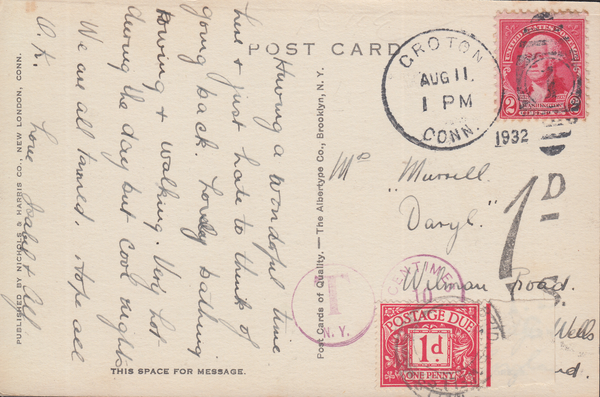 POST CARD
Having a wonderful time
here & just hate to think of
going back. Lovely bathing
rowing & walking. Very hot
during the day but cool nights
We are all tanned. Hope all
O.K.
Love
THIS SPACE FOR MESSAGE.
PUBLISHED BY NICHOLS & HARRIS CO., NEW LONDON, CONN.
Post Cards of Quality. — The Albertype Co., Brooklyn, N. Y.
CROTON
AUG 11.
1 PM
CONN.
1932
UNITED STATES POSTAGE
WASHINGTON
2 2
1D
"
Daryl."
Road.
Wells
nd.
T
N.Y.
CENTIMES
10
POSTAGE DUE
1d.
ONE PENNY